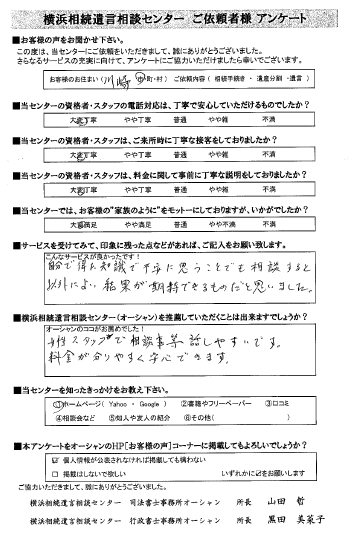 横浜相続遺言相談センター ご依頼者様 アンケート
■お客様の声をお聞かせ下さい。
この度は、当センターにご依頼をいただきまして、誠にありがとうございました。
さらなるサービスの充実に向けて、アンケートにご協力いただけましたら幸いでございます。
お客様のお住まい（川崎 市・町・村） ご依頼内容（ 相続手続き ・ 遺産分割 ・遺言 ）
■当センターの資格者・スタッフの電話対応は、丁寧で安心していただけるものでしたか？
大変丁寧 やや丁寧 普通 やや雑 不満
■当センターの資格者・スタッフは、ご来所時に丁寧な接客をしておりましたか？
大変丁寧 やや丁寧 普通 やや雑 不満
■当センターの資格者・スタッフは、料金に関して事前に丁寧な説明をしておりましたか？
大変丁寧 やや丁寧 普通 やや雑 不満
■当センターでは、お客様の"家族のように"をモットーにしておりますが、いかがでしたか？
大変満足 やや満足 普通 やや不満 不満
■サービスを受けてみて、印象に残った点などがあれば、ご記入をお願い致します。
こんなサービスが良かったです！
で得た知識で不安に思うことでも相談すると
以外によい結果が期待できるものだと思いました。
■横浜相続遺言相談センター（オーシャン）を推薦していただくことは出来ますでしょうか？
オーシャンのココがお薦めでした！
女性スタッフで相談事等話しやすいです。
料金が分りやすく安心できます。
■当センターを知ったきっかけをお教え下さい。
①ホームページ（ Yahoo ・ Google ） ②書籍やフリーペーパー ③口コミ
④相談会など ⑤知人や友人の紹介 ⑥その他（ ）
■本アンケートをオーシャンのHP[お客様の声]コーナーに掲載してもよろしいでしょうか？
☑ 個人情報が公表されなければ掲載しても構わない
□ 掲載はしないで欲しい いずれかに☑をお願いします
ご協力いただきまして、誠にありがとうございました。
横浜相続遺言相談センター 司法書士事務所オーシャン 所長 山田 哲
横浜相続遺言相談センター 行政書士事務所オーシャン 所長 黒田 美菜子